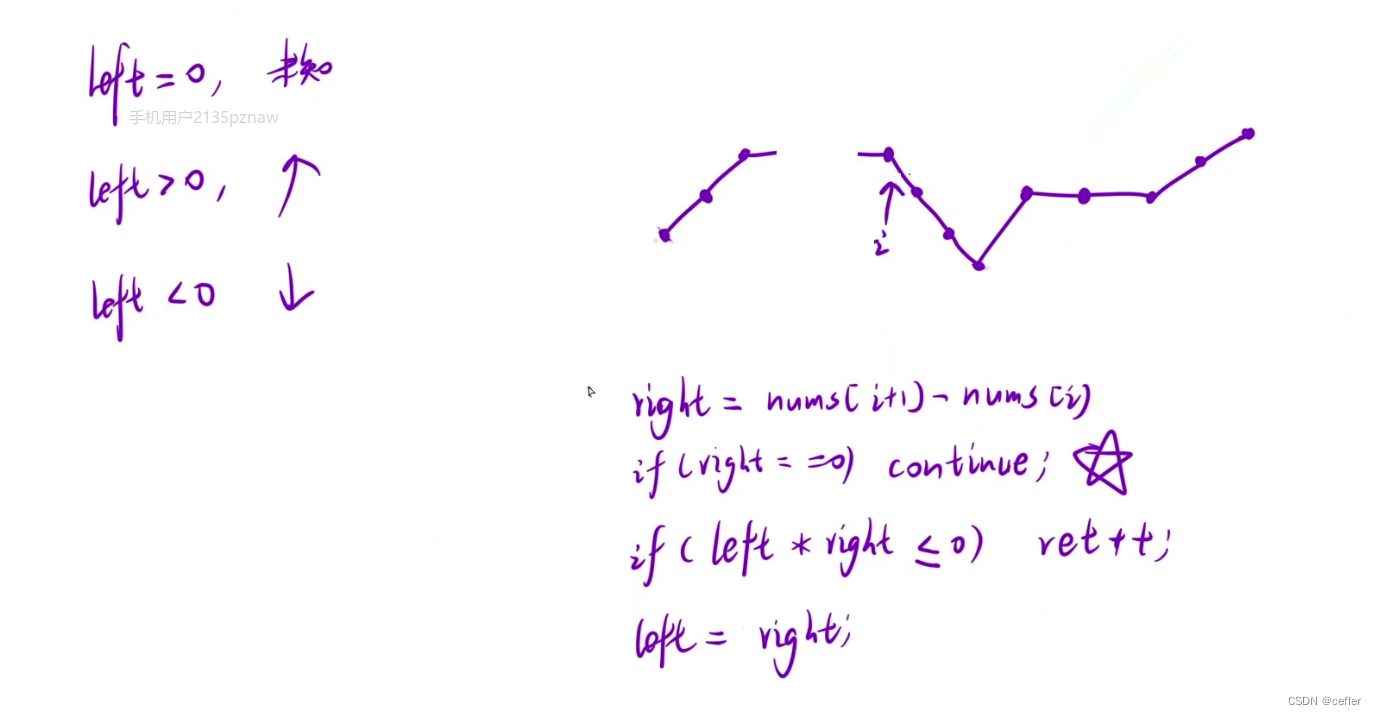 left = 0, 未知
手机用户2135pznaw
left > 0, ↑
left < 0 ↓
i
right = nums[i+1] - nums[i]
if (right == 0) continue; ☆
if ( left * right ≤ 0) ret++;
left = right;
CSDN @cefler